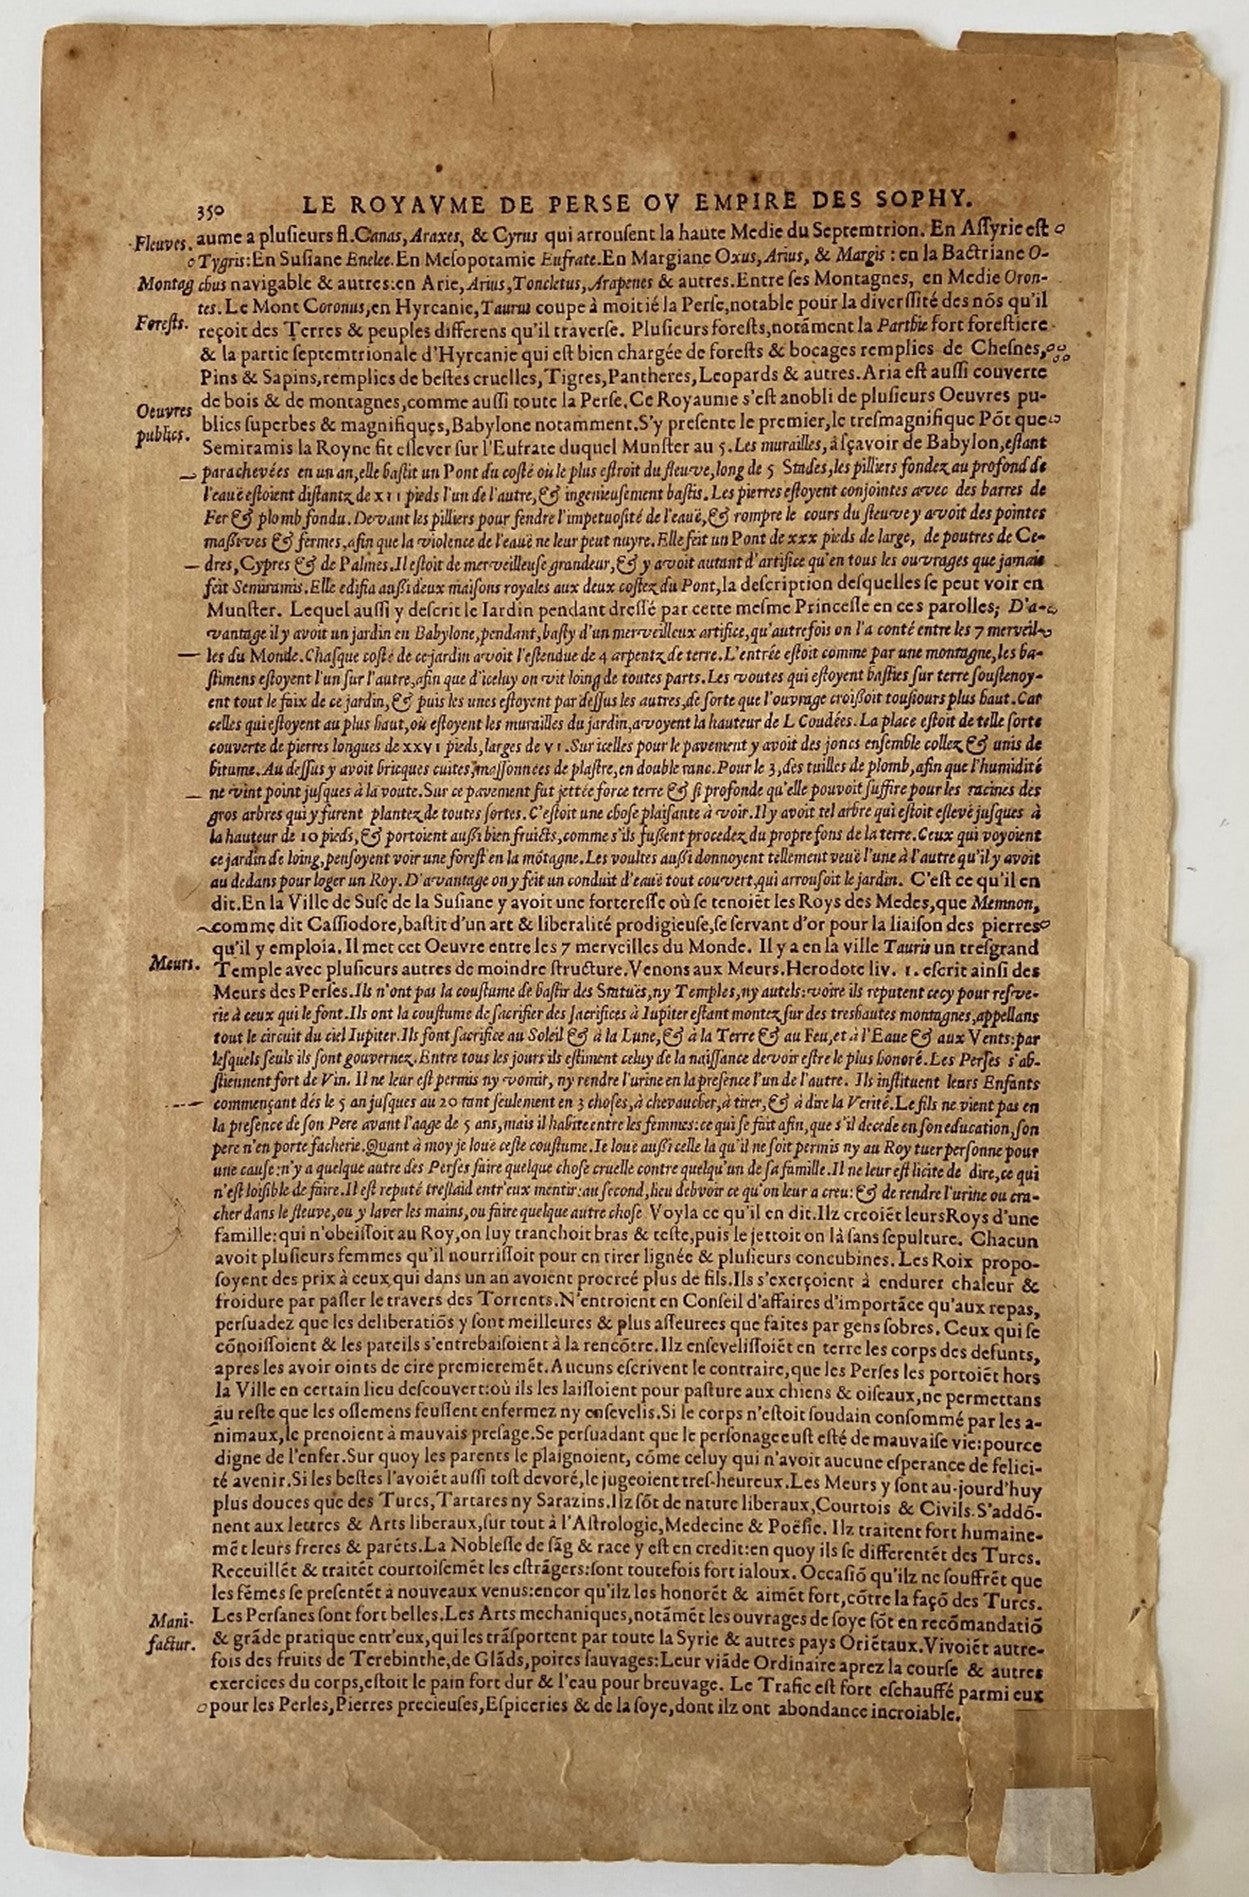 350 LE ROYAVME DE PERSE OV EMPIRE DES SOPHY.
Fleuves. aume a pluſieurs fl. Canas, Araxes, & Cyrus qui arrouſent la haute Medie du Septemtrion. En Aſſyrie eſt
Tygris: En Suſiane Enelee. En Meſopotamie Eufrate. En Margiane Oxus, Arius, & Margis : en la Bactriane O-
Montag chus navigable & autres: en Arie, Arius, Toncletus, Arapenes & autres. Entre ſes Montagnes, en Medie Oron-
tes. Le Mont Coronus, en Hyrcanie, Taurus coupe à moitié la Perſe, notable pour la diverſſité des nõs qu'il
Foreſts. reçoit des Terres & peuples differens qu'il traverſe. Pluſieurs foreſts, notãment la Parthie fort foreſtiere
& la partie ſeptemtrionale d'Hyrcanie qui eſt bien chargée de foreſts & bocages remplies de Cheſnes,
Pins & Sapins, remplies de beſtes cruelles, Tigres, Pantheres, Leopards & autres. Aria eſt auſſi couverte
Oeuvres de bois & de montagnes, comme auſſi toute la Perſe. Ce Royaume s'eſt anobli de pluſieurs Oeuvres pu-
publics. blics ſuperbes & magnifiques, Babylone notamment. S'y preſente le premier, le treſmagnifique Põt que
Semiramis la Royne fit eſlever ſur l'Eufrate duquel Munſter au 5. Les murailles, àſçavoir de Babylon, eſtant
parachevées en un an, elle baſtit un Pont du coſté où le plus eſtroit du fleuve, long de 5 Stades, les pilliers fondez au profond de
l'eauë eſtoient diſtantz de XII pieds l'un de l'autre, & ingenieuſement baſtis. Les pierres eſtoyent conjointes avec des barres de
Fer & plomb fondu. Devant les pilliers pour fendre l'impetuoſité de l'eauë, & rompre le cours du fleuve y avoit des pointes
maßives & fermes, afin que la violence de l'eauë ne leur peut nuyre. Elle feit un Pont de XXX pieds de large, de poutres de Ce-
dres, Cypres & de Palmes. Il eſtoit de merveilleuſe grandeur, & y avoit autant d'artifice qu'en tous les ouvrages que jamais
feit Semiramis. Elle edifia außi deux maiſons royales aux deux coſtez du Pont, la deſcription deſquelles ſe peut voir en
Munſter. Lequel auſſi y deſcrit le Iardin pendant dreſſé par cette meſme Princeſſe en ces parolles; D'a-
vantage il y avoit un jardin en Babylone, pendant, baſty d'un merveilleux artifice, qu'autrefois on l'a conté entre les 7 merveil-
les du Monde. Chaſque coſté de ce jardin avoit l'eſtendue de 4 arpentz de terre. L'entrée eſtoit comme par une montagne, les ba-
ſtimens eſtoyent l'un ſur l'autre, afin que d'iceluy on vit loing de toutes parts. Les voutes qui eſtoyent baſties ſur terre ſouſtenoy-
ent tout le faix de ce jardin, & puis les unes eſtoyent par deſſus les autres, de ſorte que l'ouvrage croißoit touſiours plus haut. Car
celles qui eſtoyent au plus haut, où eſtoyent les murailles du jardin, avoyent la hauteur de L Coudées. La place eſtoit de telle ſorte
couverte de pierres longues de XXVI pieds, larges de VI. Sur icelles pour le pavement y avoit des joncs enſemble collez & unis de
bitume. Au deſſus y avoit bricques cuites, maſſonnées de plaſtre, en double ranc. Pour le 3, des tuilles de plomb, afin que l'humidité
ne vint point juſques à la voute. Sur ce pavement fut jettée force terre & ſi profonde qu'elle pouvoit ſuffire pour les racines des
gros arbres qui y furent plantez de toutes ſortes. C'eſtoit une choſe plaiſante à voir. Il y avoit tel arbre qui eſtoit eſlevé juſques à
la hauteur de 10 pieds, & portoient außi bien fruicts, comme s'ils fußent procedez du propre fons de la terre. Ceux qui voyoient
ce jardin de loing, penſoyent voir une foreſt en la mõtagne. Les voultes außi donnoyent tellement veuë l'une à l'autre qu'il y avoit
au dedans pour loger un Roy. D'avantage on y feit un conduit d'eauë tout couvert, qui arrouſoit le jardin. C'eſt ce qu'il en
dit. En la Ville de Suſe de la Suſiane y avoit une fortereſſe où ſe tenoiẽt les Roys des Medes, que Memnon,
comme dit Caſſiodore, baſtit d'un art & liberalité prodigieuſe, ſe ſervant d'or pour la liaiſon des pierres
qu'il y emploia. Il met cet Oeuvre entre les 7 merveilles du Monde. Il y a en la ville Tauris un treſgrand
Meurs. Temple avec pluſieurs autres de moindre ſtructure. Venons aux Meurs. Herodote liv. 1. eſcrit ainſi des
Meurs des Perſes. Ils n'ont pas la couſtume de baſtir des Statuës, ny Temples, ny autels: voire ils reputent cecy pour reſve-
rie à ceux qui le font. Ils ont la couſtume de ſacrifier des ſacrifices à Iupiter eſtant montez ſur des treshautes montagnes, appellans
tout le circuit du ciel Iupiter. Ils font ſacrifice au Soleil & à la Lune, & à la Terre & au Feu, et à l'Eaue & aux Vents: par
leſquels ſeuls ils ſont gouvernez. Entre tous les jours ils eſtiment celuy de la naiſſance devoir eſtre le plus honoré. Les Perſes s'ab-
ſtiennent fort de Vin. Il ne leur eſt permis ny vomir, ny rendre l'urine en la preſence l'un de l'autre. Ils inſtituent leurs Enfants
commençant dés le 5 an juſques au 20 tant ſeulement en 3 choſes, à chevaucher, à tirer, & à dire la Verité. Le fils ne vient pas en
la preſence de ſon Pere avant l'aage de 5 ans, mais il habite entre les femmes: ce qui ſe fait afin, que s'il decede en ſon education, ſon
pere n'en porte facherie. Quant à moy je louë ceſte couſtume. Ie louë außi celle là qu'il ne ſoit permis ny au Roy tuer perſonne pour
une cauſe: n'y a quelque autre des Perſes faire quelque choſe cruelle contre quelqu'un de ſa famille. Il ne leur eſt licite de dire, ce qui
n'eſt loiſible de faire. Il eſt reputé treſlaid entr'eux mentir: au ſecond, lieu debvoir ce qu'on leur a creu: & de rendre l'urine ou cra-
cher dans le fleuve, ou y laver les mains, ou faire quelque autre choſe Voyla ce qu'il en dit. Ilz creoiẽt leurs Roys d'une
famille: qui n'obeiſſoit au Roy, on luy tranchoit bras & teſte, puis le jettoit on là ſans ſepulture. Chacun
avoit pluſieurs femmes qu'il nourriſſoit pour en tirer lignée & pluſieurs concubines. Les Roix propo-
ſoyent des prix à ceux qui dans un an avoient procreé plus de fils. Ils s'exerçoient à endurer chaleur &
froidure par paſſer le travers des Torrents. N'entroient en Conſeil d'affaires d'importãce qu'aux repas,
perſuadez que les deliberatiõs y ſont meilleures & plus aſſeurees que faites par gens ſobres. Ceux qui ſe
cõnoiſſoient & les pareils s'entrebaiſoient à la rencõtre. Ilz enſeveliſſoiẽt en terre les corps des defunts,
apres les avoir oints de cire premieremẽt. Aucuns eſcrivent le contraire, que les Perſes les portoiẽt hors
la Ville en certain lieu deſcouvert: où ils les laiſſoient pour paſture aux chiens & oiſeaux, ne permettans
au reſte que les oſſemens feuſſent enfermez ny enſevelis. Si le corps n'eſtoit ſoudain conſommé par les a-
nimaux, le prenoient à mauvais preſage. Se perſuadant que le perſonage euſt eſté de mauvaiſe vie: pource
digne de l'enfer. Sur quoy les parents le plaignoient, cõme celuy qui n'avoit aucune eſperance de felici-
té avenir. Si les beſtes l'avoiẽt auſſi toſt devoré, le jugeoient treſ-heureux. Les Meurs y ſont au-jourd'huy
plus douces que des Turcs, Tartares ny Sarazins. Ilz ſõt de nature liberaux, Courtois & Civils. S'addõ-
nent aux lettres & Arts liberaux, ſur tout à l'Aſtrologie, Medecine & Poëſie. Ilz traitent fort humaine-
mẽt leurs freres & parẽts. La Nobleſſe de ſãg & race y eſt en credit: en quoy ils ſe differentẽt des Turcs.
Receuillẽt & traitẽt courtoiſemẽt les eſtrãgers: ſont toutefois fort ialoux. Occaſiõ qu'ilz ne ſouffrẽt que
les fẽmes ſe preſentẽt à nouveaux venus: encor qu'ilz les honorẽt & aimẽt fort, cõtre la façõ des Turcs.
Mani- Les Perſanes ſont fort belles. Les Arts mechaniques, notãmẽt les ouvrages de ſoye ſõt en recõmandatiõ
factur. & grãde pratique entr'eux, qui les trãſportent par toute la Syrie & autres pays Oriẽtaux. Vivoiẽt autre-
fois des fruits de Terebinthe, de Glãds, poires ſauvages: Leur viãde Ordinaire aprez la courſe & autres
exercices du corps, eſtoit le pain fort dur & l'eau pour breuvage. Le Trafic eſt fort eſchauffé parmi eux
pour les Perles, Pierres precieuſes, Eſpiceries & de la ſoye, dont ilz ont abondance incroiable.